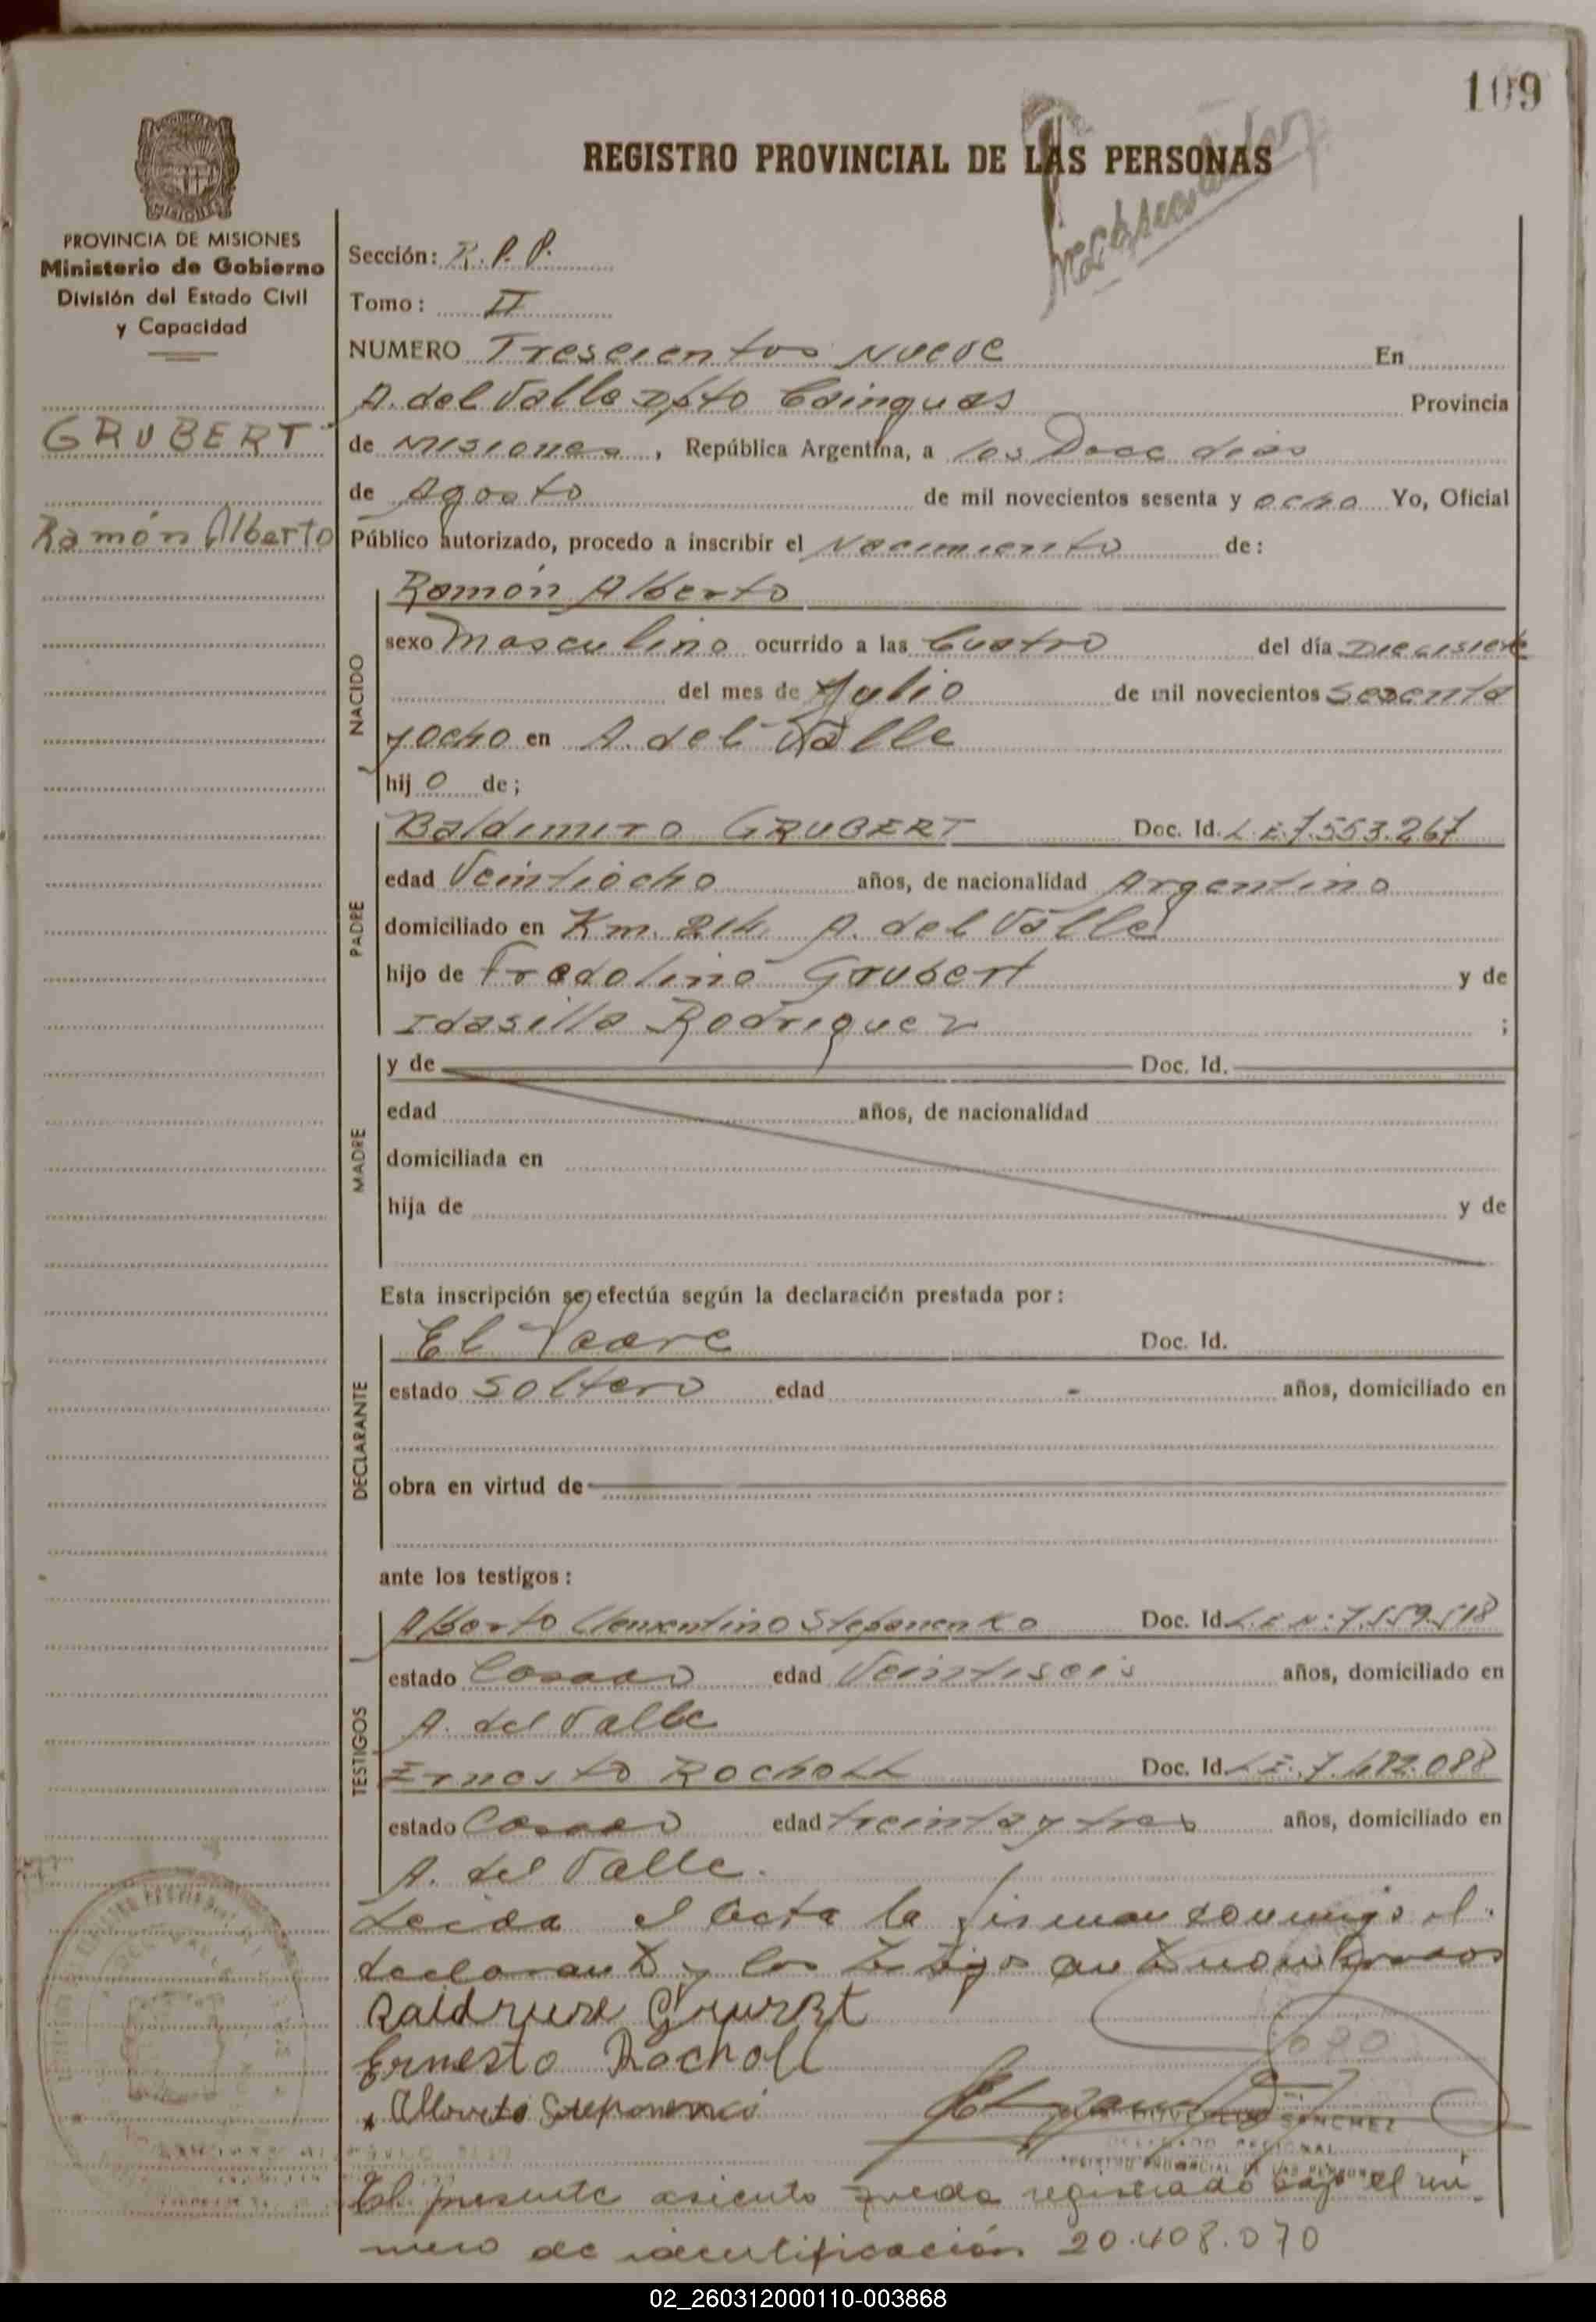 109
REGISTRO PROVINCIAL DE LAS PERSONAS
PROVINCIA DE MISIONES
Ministerio de Gobierno
División del Estado Civil
y Capacidad
GRUBERT
Ramón Alberto
Sección: R. P. P.
Tomo: II
NUMERO Trescientos Nueve En
A. del Valle Dpto Cainguas Provincia
de Misiones, República Argentina, a los Doce dias
de Agosto de mil novecientos sesenta y ocho Yo, Oficial
Público autorizado, procedo a inscribir el Nacimiento de:
NACIDO
Ramón Alberto
sexo Masculino ocurrido a las Cuatro del día Diecisiete
del mes de Julio de mil novecientos Sesenta
y ocho en A. del Valle
hij o de;
PADRE
Baldimiro GRUBERT Doc. Id. L.E. 7.553.267
edad Veintiocho años, de nacionalidad Argentino
domiciliado en Km. 214 A. del Valle
hijo de Fredolino Grubert y de
Idasilla Rodriguez ;
MADRE
y de Doc. Id.
edad años, de nacionalidad
domiciliada en
hija de y de
Esta inscripción se efectúa según la declaración prestada por:
DECLARANTE
El Padre Doc. Id.
estado Soltero edad - años, domiciliado en
obra en virtud de
ante los testigos:
TESTIGOS
Alberto Clementino Stepanenko Doc. Id. L.E. N: 7.559.518
estado Casado edad Veintiseis años, domiciliado en
A. del Valle
Ernesto Rocholl Doc. Id. L.E. 7.482.088
estado Casado edad treinta y tres años, domiciliado en
A. del Valle.
Leida el acta la firman conmigo el
declarante y los testigos antenombrados
Ernesto Rocholl
SANCHEZ
REGIONAL
El presente asiento queda registrado bajo el nú-
mero de identificación 20.408.070
02_260312000110-003868